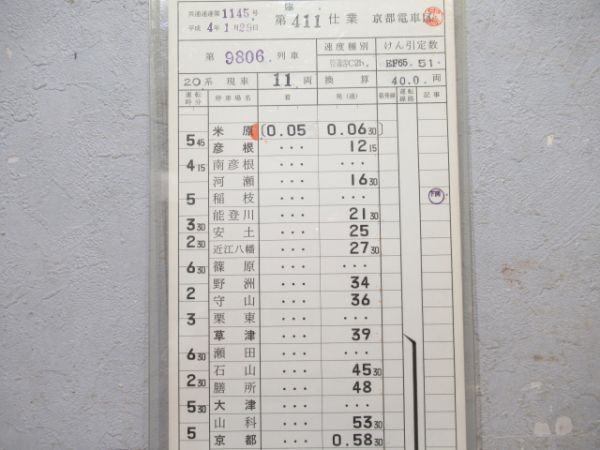 共通達達第1145号
平成4年1月25日
臨
第411仕業 京都電車区
第9806列車
速度種別 けん引定数
EF65. 51.
20系 現車 11両 換算 40.0両
運転時分 停車場名 着 発(通) 着発線 運転線路 記事
米原 (0.05 0.06 30)
5 45
彦根 ・・・ 12 15
4 15
南彦根 ・・・ ・・・
河瀬 ・・・ 16 30
5
稲枝 ・・・ ・・・
能登川 ・・・ 21 30
3 30
安土 ・・・ 25
2 30
近江八幡 ・・・ 27 30
6 30
篠原 ・・・ ・・・
野洲 ・・・ 34
2
守山 ・・・ 36
3
栗東 ・・・ ・・・
草津 ・・・ 39
6 30
瀬田 ・・・ ・・・
石山 ・・・ 45 30
2 30
膳所 ・・・ 48
5 30
大津 ・・・ ・・・
山科 ・・・ 53 30
5
京都 ・・・ 0.58 30